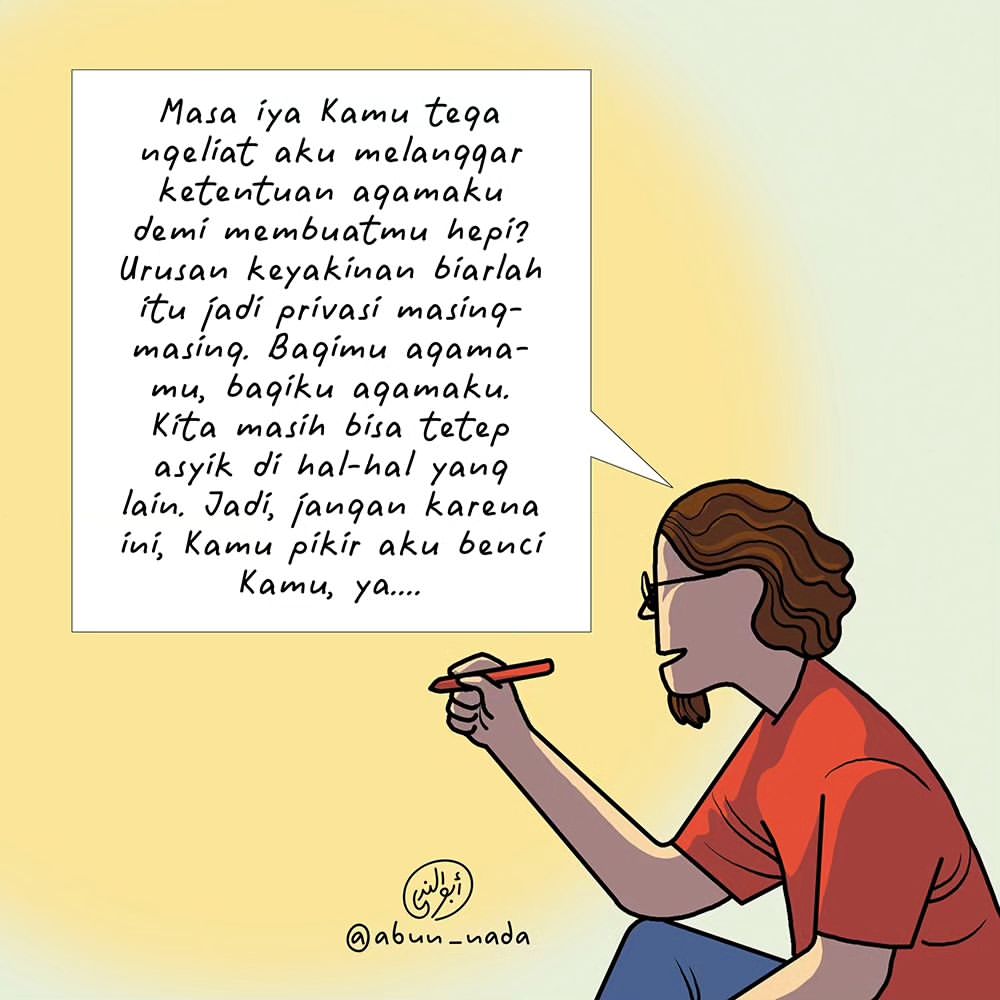 Masa iya Kamu tega
ngeliat aku melanggar
ketentuan agamaku
demi membuatmu hepi?
Urusan keyakinan biarlah
itu jadi privasi masing-
masing. Bagimu agama-
mu, bagiku agamaku.
Kita masih bisa tetep
asyik di hal-hal yang
lain. Jadi, jangan karena
ini, Kamu pikir aku benci
Kamu, ya....
أبو الندى
@abun_nada